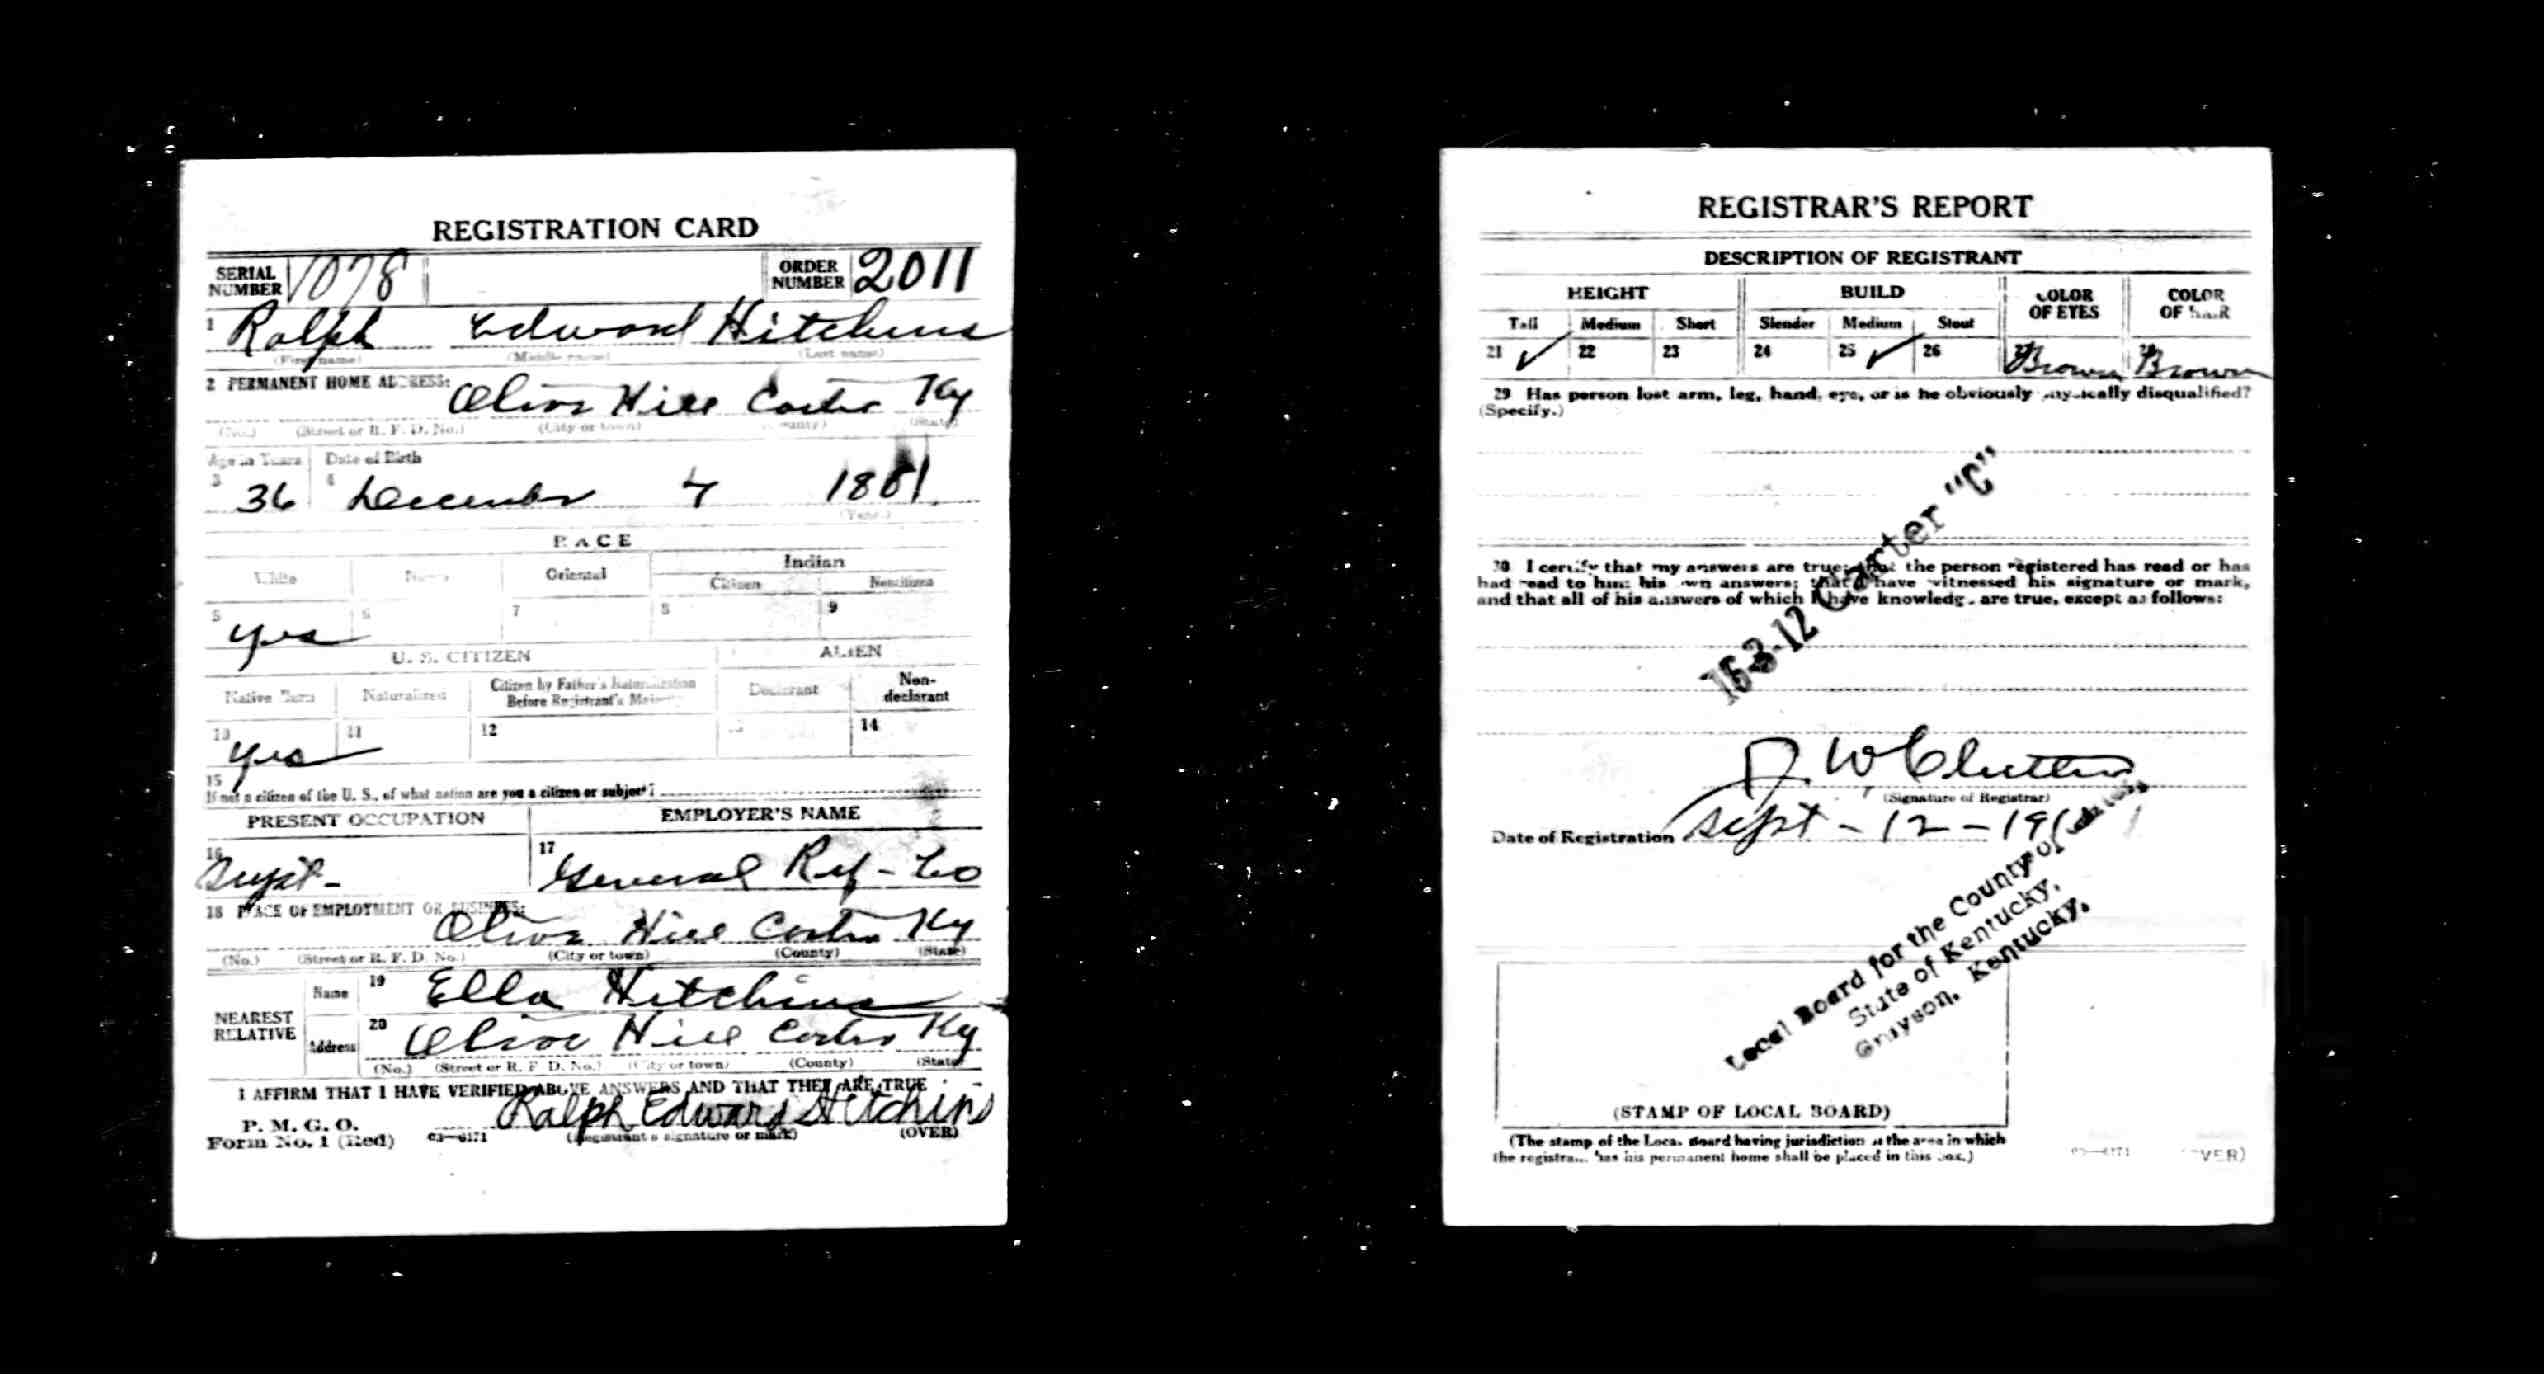 REGISTRATION CARD
SERIAL NUMBER 1078 ORDER NUMBER 2011
1 Ralph Edward Hitchins
(First name) (Middle name) (Last name)
2 PERMANENT HOME ADDRESS:
Olive Hill Carter Ky
(No.) (Street or R. F. D. No.) (City or town) (County) (State)
Age in Years Date of Birth
3 36 4 December 4 1881
(Year)
RACE
White Negro Oriental Indian
Citizen Noncitizen
5 yes 6 7 8 9
U. S. CITIZEN ALIEN
Native Born Naturalized Citizen by Father's Naturalization Before Registrant's Majority Declarant Non-declarant
10 yes 11 12 13 14
15
If not a citizen of the U. S., of what nation are you a citizen or subject?
PRESENT OCCUPATION EMPLOYER'S NAME
16 Supt- 17 General Ref-Co
18 PLACE OF EMPLOYMENT OR BUSINESS:
Olive Hill Carter Ky
(No.) (Street or R. F. D. No.) (City or town) (County) (State)
NEAREST RELATIVE
Name 19 Ella Hitchins
Address 20 Olive Hill Carter Ky
(No.) (Street or R. F. D. No.) (City or town) (County) (State)
I AFFIRM THAT I HAVE VERIFIED ABOVE ANSWERS AND THAT THEY ARE TRUE
P. M. G. O.
Form No. 1 (Red) 03-6171 Ralph Edward Hitchins
(Registrant's signature or mark) (OVER)
REGISTRAR'S REPORT
DESCRIPTION OF REGISTRANT
HEIGHT BUILD COLOR OF EYES COLOR OF HAIR
Tall Medium Short Slender Medium Stout
21 ✓ 22 23 24 25 ✓ 26 27 Brown 28 Brown
29 Has person lost arm, leg, hand, eye, or is he obviously physically disqualified?
(Specify.)
30 I certify that my answers are true; that the person registered has read or has
had read to him his own answers; that I have witnessed his signature or mark,
and that all of his answers of which I have knowledge are true, except as follows:
16-3-12 Carter "C"
J. W.
(Signature of Registrar)
Date of Registration Sept-12-191
Local Board for the County of Carter,
State of Kentucky,
Grayson, Kentucky.
(STAMP OF LOCAL BOARD)
(The stamp of the Local Board having jurisdiction of the area in which
the registrant has his permanent home shall be placed in this box.)
03-6171 (OVER)